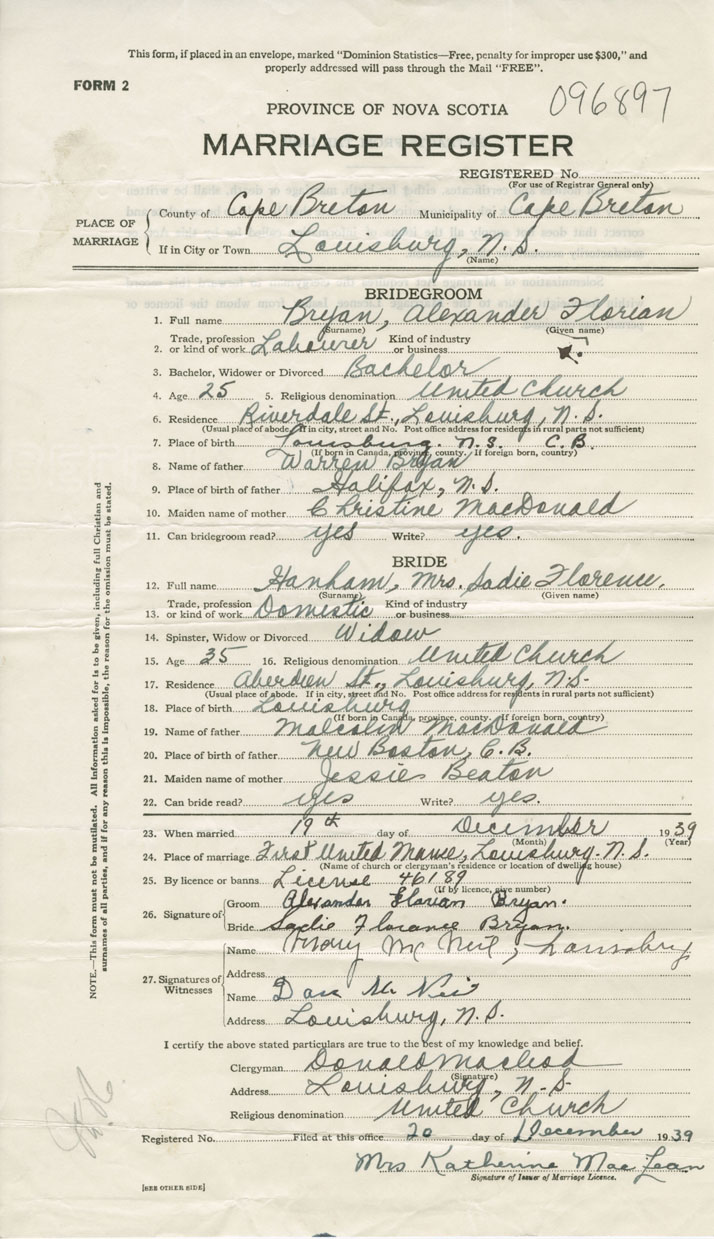 This form, if placed in an envelope, marked "Dominion Statistics—Free, penalty for improper use $300," and
properly addressed will pass through the Mail "FREE".
FORM 2
096897
PROVINCE OF NOVA SCOTIA
MARRIAGE REGISTER
REGISTERED No.
(For use of Registrar General only)
PLACE OF MARRIAGE
County of Cape Breton Municipality of Cape Breton
If in City or Town Louisburg, N.S.
(Name)
BRIDEGROOM
1. Full name Bryan, Alexander Florian
(Surname) (Given name)
2. Trade, profession or kind of work Labourer Kind of industry or business
3. Bachelor, Widower or Divorced Bachelor
4. Age 25 5. Religious denomination United Church
6. Residence Riverdale St., Louisburg, N.S.
(Usual place of abode. If in city, street and No. Post office address for residents in rural parts not sufficient)
7. Place of birth Louisburg. N.S. C.B.
(If born in Canada, province, county. If foreign born, country)
8. Name of father Warren Bryan
9. Place of birth of father Halifax, N.S.
10. Maiden name of mother Christine MacDonald
11. Can bridegroom read? yes Write? yes.
BRIDE
12. Full name Hanham, Mrs. Sadie Florence.
(Surname) (Given name)
13. Trade, profession or kind of work Domestic Kind of industry or business
14. Spinster, Widow or Divorced Widow
15. Age 35 16. Religious denomination United Church
17. Residence Aberdien St., Louisburg, N.S.
(Usual place of abode. If in city, street and No. Post office address for residents in rural parts not sufficient)
18. Place of birth Louisburg
(If born in Canada, province, county. If foreign born, country)
19. Name of father Malcolm MacDonald
20. Place of birth of father New Boston, C.B.
21. Maiden name of mother Jessie Beaton
22. Can bride read? yes Write? yes.
23. When married 19th day of December 1939
(Month) (Year)
24. Place of marriage First United Manse, Louisburg. N.S.
(Name of church or clergyman's residence or location of dwelling house)
25. By licence or banns License 46189
(If by licence, give number)
26. Signature of
Groom Alexander Florian Bryan.
Bride Sadie Florance Bryan.
27. Signatures of Witnesses
Name Mc Neil,
Address
Name Dan
Address Louisburg, N.S.
I certify the above stated particulars are true to the best of my knowledge and belief.
Clergyman Donald Macleod
(Signature)
Address Louisburg, N.S.
Religious denomination United Church
Registered No. Filed at this office 20 day of December 1939
Mrs Katherine MacLean
Signature of Issuer of Marriage Licence.
[SEE OTHER SIDE]
NOTE.—This form must not be mutilated. All information asked for is to be given, including full Christian and
surnames of all parties, and if for any reason this is impossible, the reason for the omission must be stated.